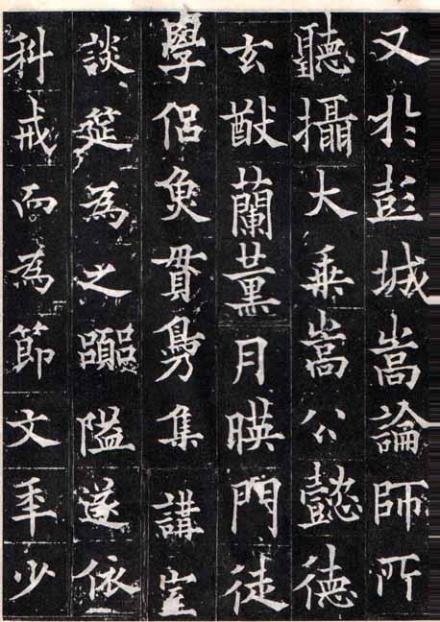 又於彭城嵩論師所
聽攝大乘嵩公懿德
玄猷蘭薰月暎門徒
學侶魚貫鳧集講室
談筵為之囂隘遂依
科戒而為節文年少